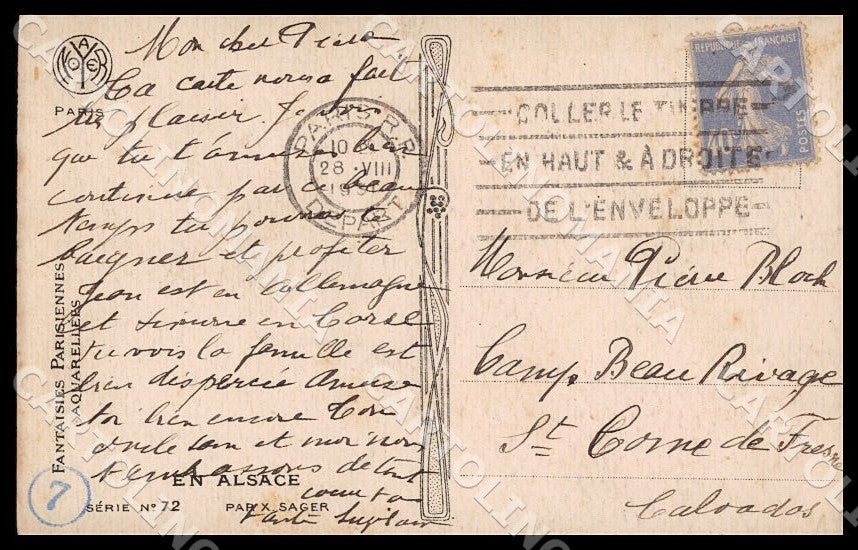 Mon cher Pierre
Ta carte nous a fait
plaisir. Je vois
que tu t'amuses bien
continue par ce beau
temps tu pourras te
baigner et profiter
Jean est en Allemagne
et Simone en Corse
tu vois la famille est
bien dispersée Amuse
toi bien encore Ton
oncle et moi nous
t'embrassons de tout
coeur ta
tante
PARIS
FANTAISIES PARISIENNES
AQUARELLÉES
EN ALSACE
SÉRIE Nº 72 PAR X. SAGER
7
PARIS R.P.
10
28 VIII
DEPART
COLLER LE TIMBRE
EN HAUT & À DROITE
DE L'ENVELOPPE
RÉPUBLIQUE FRANÇAISE
POSTES
Monsieur Pierre Bloch
Camp Beau Rivage
St Come de Fresne
Calvados
CARTOLINOMANIA